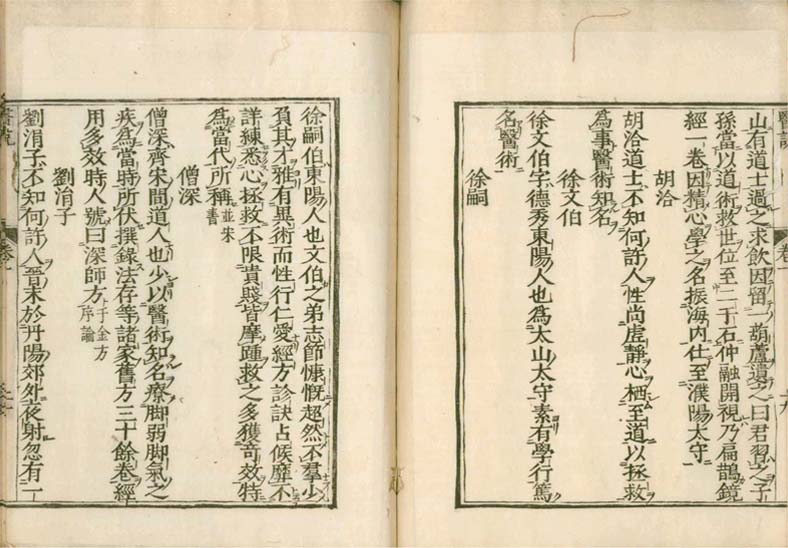 山有道士過之求飲因留一葫蘆遺之曰君習之子
孫當以道術救世位至二千石仲融開視乃扁鵲鏡
經一卷因精心學之名振海內仕至濮陽太守
胡洽
胡洽道士不知何許人性尚虛靜心栖至道以拯救
為事醫術知名
徐文伯
徐文伯字德秀東陽人也為太山太守素有學行篤
名醫術
徐嗣
徐嗣伯東陽人也文伯之弟志節慷慨超然不羣少
負其才雅有異術而性行仁愛經方診訣占候靡不
詳練悉心拯救不限貴賤皆摩踵救之多獲奇效特
為當代所稱並宋書
僧深
僧深齊宋間道人也少以醫術知名療脚弱脚氣之
疾為當時所伏撰錄法存等諸家舊方三十餘卷經
用多效時人號曰深師方千金方序論
劉涓子
劉涓子不知何許人晉末於丹陽郊外夜射忽有一